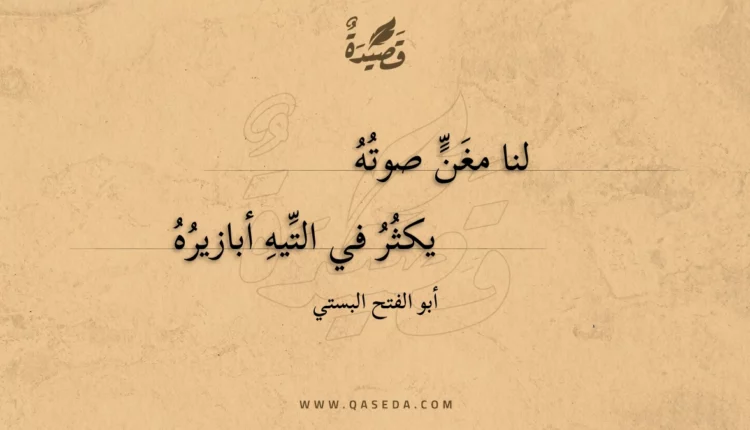 قَصِيدَةٌ
لنا مغَنٍّ صوتُهُ
يكثُرُ في التِّيهِ أبازيرُهُ
أبو الفتح البستي
WWW.QASEDA.COM